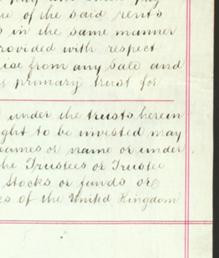 of the said rents
in the same manner
provided with respect
arise from any sale and
primary trust for
under the trusts herein
ought to be invested may
names or name or under
the Trustees or Trustee
Stocks or funds or
of the United Kingdom